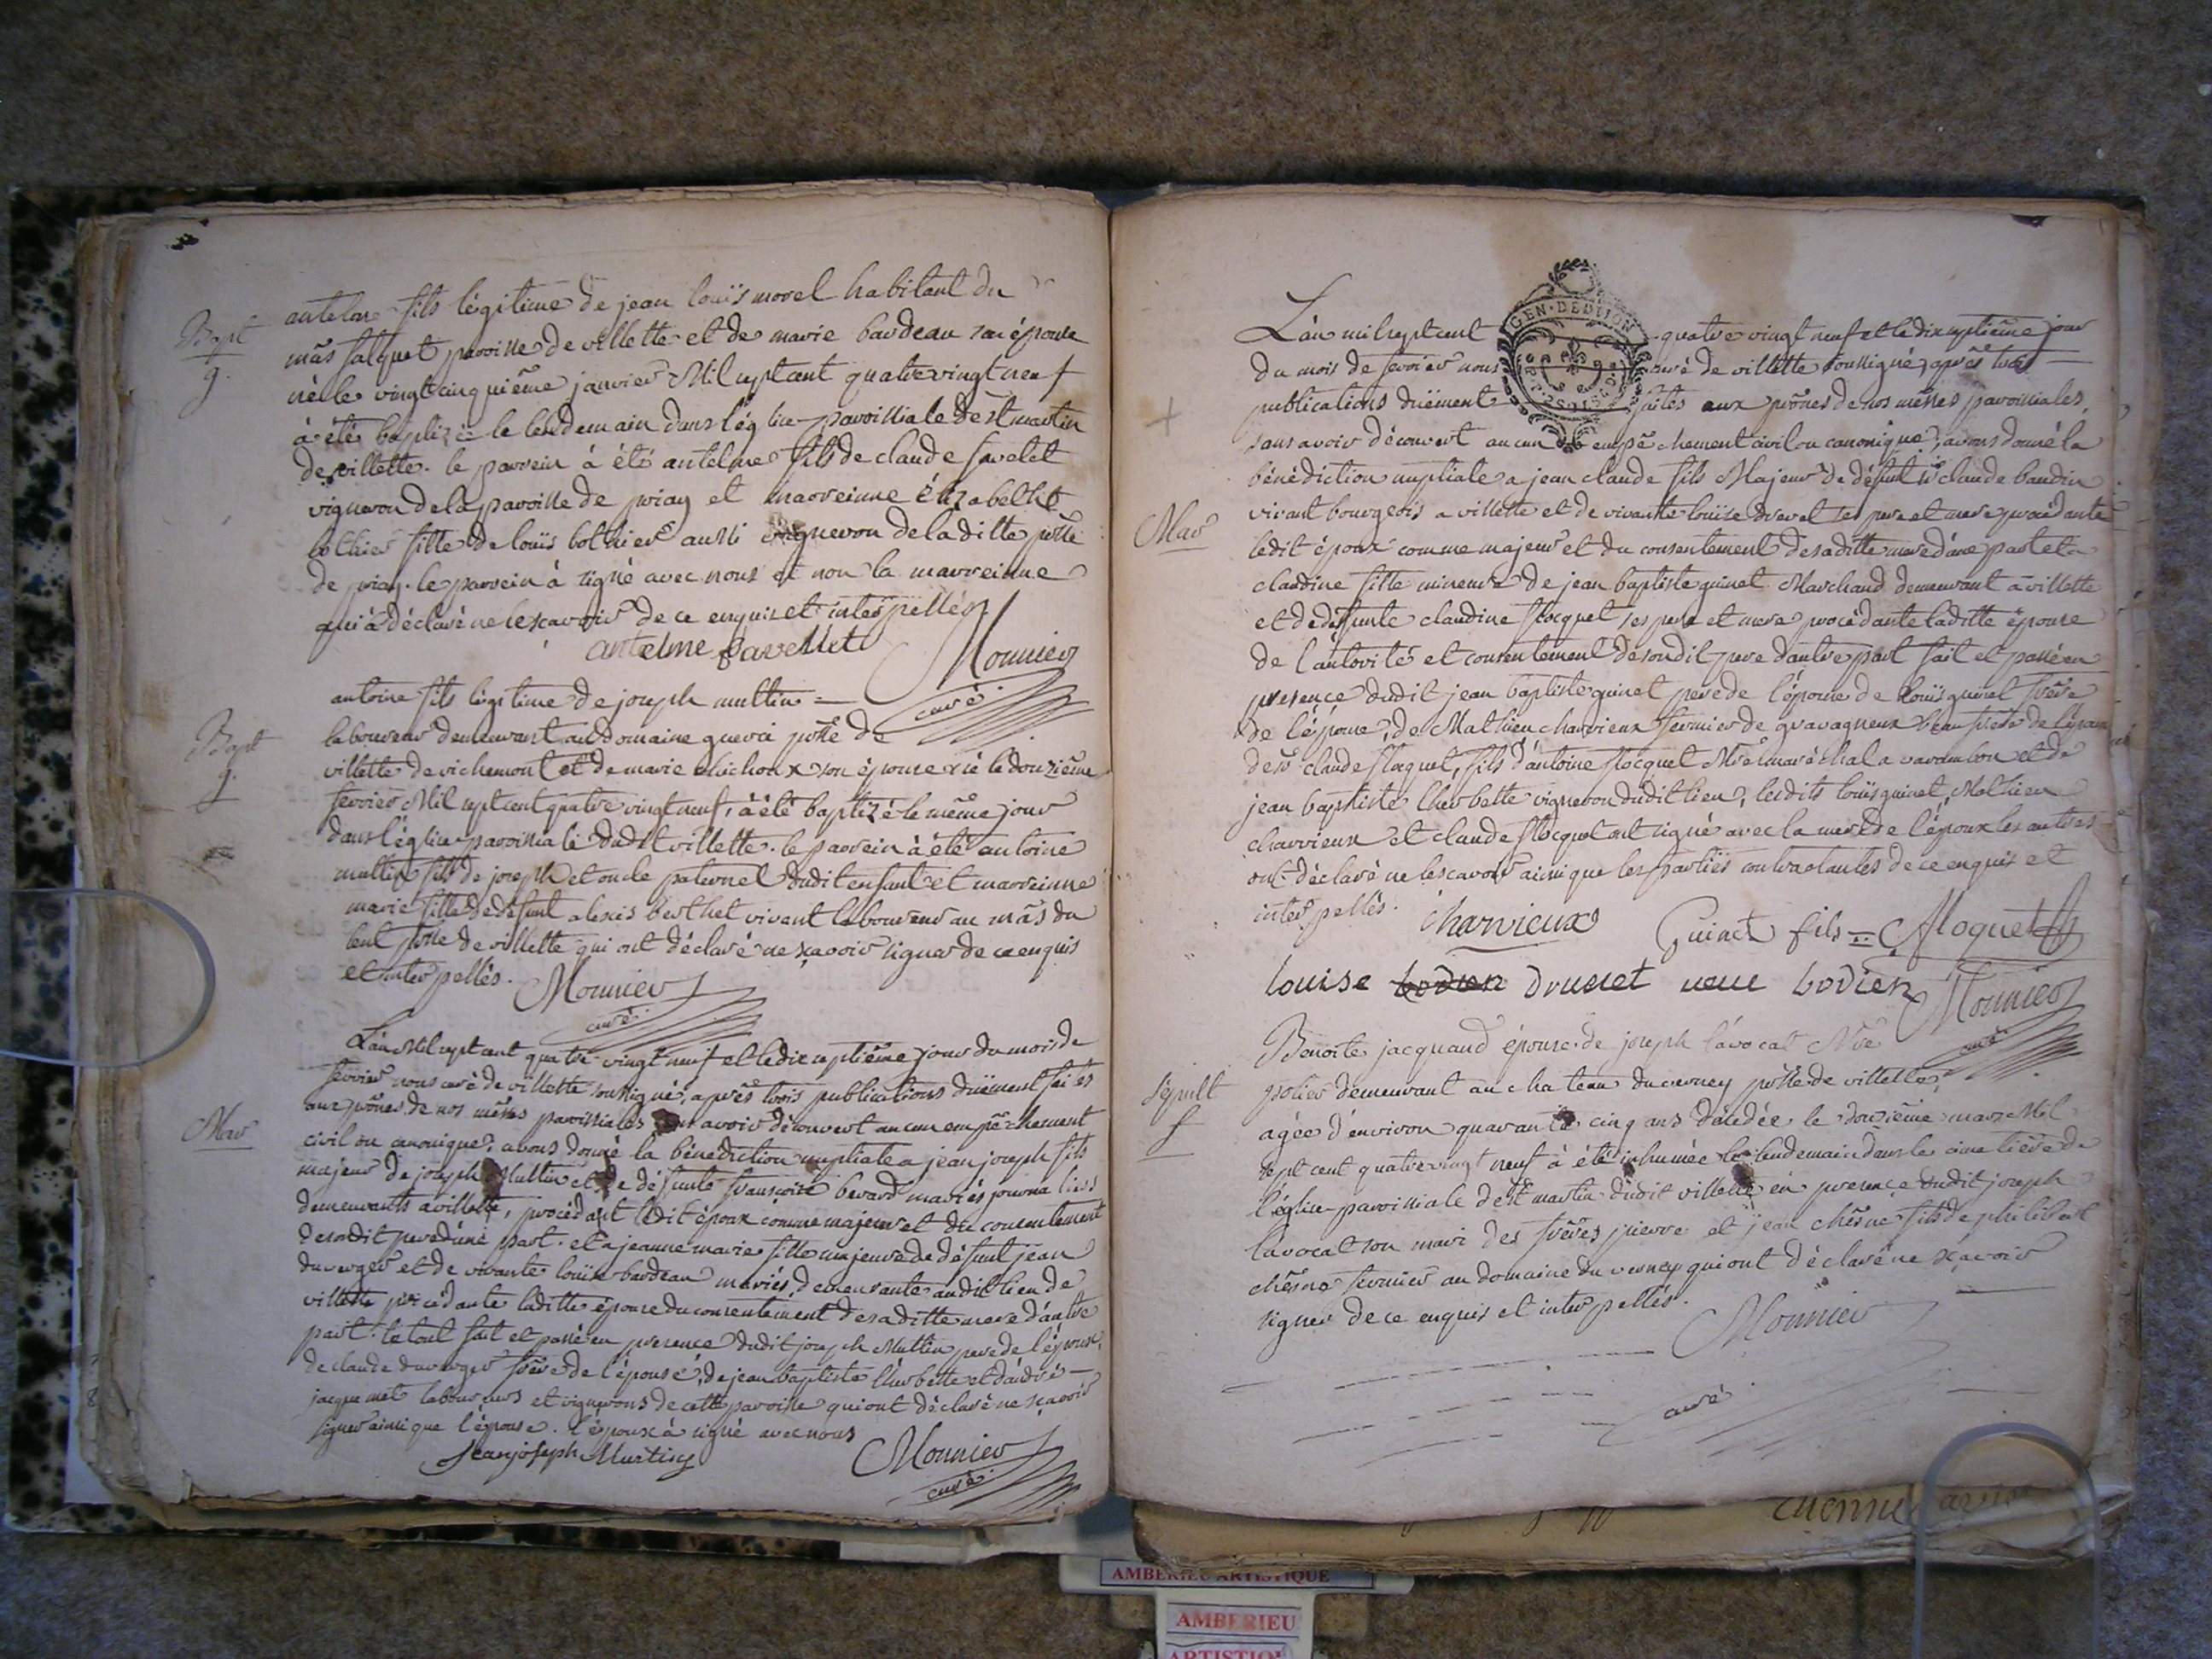 Bapt
g.
antelme fils légitime de jean louïs morel habitant du
mâs falquet paroisse de villette et de marie bardeau son épouse
né le vingt cinquième janvier Mil sept cent quatre vingt neuf
à été baptizé le lendemain dans l'église paroissiale de st martin
de villette. le parrein à été antelme fils de claude favelet
vigneron de la paroisse de priay et marreinne élizabeth
bothier fille de louïs bothier aussi vigneron de laditte psse
de priay. le parrein à signé avec nous et non la marreinne
qui à déclaré ne le scavoir de ce enquis et interpellés
antelme favellet
Monnier
curé
Bapt
g.
antoine fils légitime de joseph multin =
laboureur demeurant au domaine psse de
villette de richemont et de marie son épouse né le douzième
fevrier Mil sept cent quatre vingt neuf, à été baptizé le même jour
dans l'église paroissiale dudit villette. le parrein à été antoine
multin fils de joseph et oncle paternel dudit enfant et marreinne
marie fille de defunt alexis berthet vivant laboureur au mâs du
psse de villette qui ont déclaré ne sçavoir signer de ce enquis
et interpellés.
Monnier
curé
Mar
L'an Mil sept cent quatre vingt neuf et le dix septième jour du mois de
fevrier nous curé de villette soussigné, après trois publications duëment faites
aux prônes de nos mêsses paroissiales sans avoir découvert aucun empêchement
civil ou canonique, avons donné la bénédiction nuptiale a jean joseph fils
majeur de joseph Multin et de défunte françoise berard mariés journaliers
demeurants a villette, procédant ledit époux comme majeur et du consentement
desondit pere d'une part. et a jeanne marie fille majeure de défunt jean
duverger et de vivante louïse bardeau mariés, demeurante audit lieu de
villette procédante laditte épouse du consentement desaditte mere d'autre
part. le tout fait et passé en presence dudit joseph Multin pere de l'époux,
de claude duverger frère de l'épouse, de jean baptiste l'herbette et d'andré
jacquemet laboureurs et vignerons de cette paroisse qui ont déclaré ne sçavoir
signer ainsi que l'épouse. l'époux à signé avec nous
Jean joseph Murtin
Monnier
curé
GEN. DE DIJON
Mar
L'an mil sept cent quatre vingt neuf et le dix septième jour
du mois de fevrier nous curé de villette soussigné, après trois
publications duëment faites aux prônes de nos mêsses paroissiales,
sans avoir découvert aucun empêchement civil ou canonique, avons donné la
bénédiction nuptiale a jean claude fils Majeur de défunt sr claude baudin
vivant bourgeois a villette et de vivante louïse drevet ses pere et mere procédant
ledit époux comme majeur et du consentement desaditte mere d'une part et a
claudine fille mineure de jean baptiste guinet Marchand demeurant a villette
et de defunte claudine flocquet ses pere et mere procédante laditte épouse
de l'autorité et consentement desondit pere d'autre part fait et passé en
presence dudit jean baptiste guinet pere de l'épouse de louïs guinet frère
de l'épouse, de Mathieu charvieux fermier de gravagneux beau frère de l'époux
de sr claude flocquet, fils d'antoine flocquet Mre maréchal a varambon et de
jean baptiste l'herbette vigneron dudit lieu, lesdits louïs guinet, Mathieu
charvieux et claude flocquet ont signé avec la mere de l'époux les autres
ont déclaré ne le scavoir ainsi que les partiës contractantes de ce enquis et
interpellés.
Charvieux
Guinet fils
floquet
louise bodien drueuet ueue bodien
Monnier
curé
Sépult
f
Benoite jacquand épouse de joseph l'avocat Mre
demeurant au chateau du verney psse de villette,
agée d'environ quarante cinq ans décédée le douzième mars Mil
sept cent quatre vingt neuf à été inhumée le lendemain dans le cimetière de
l'église paroissiale de st martin dudit villette en presence dudit joseph
lavocat son mari des frères pierre et jean chêsne fils de philibert
chêsne fermier au domaine du verney qui ont déclaré ne sçavoir
signer de ce enquis et interpellés.
Monnier
curé
AMBERIEU ARTISTIQUE
AMBERIEU
ARTISTIQUE